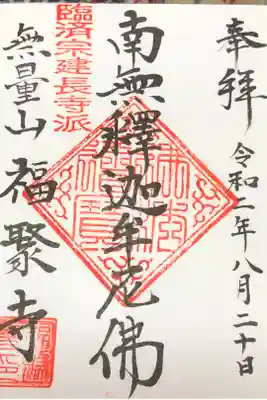 奉拝
令和二年八月二十日
南無釋迦牟尼佛
臨済宗建長寺派
無量山福聚寺